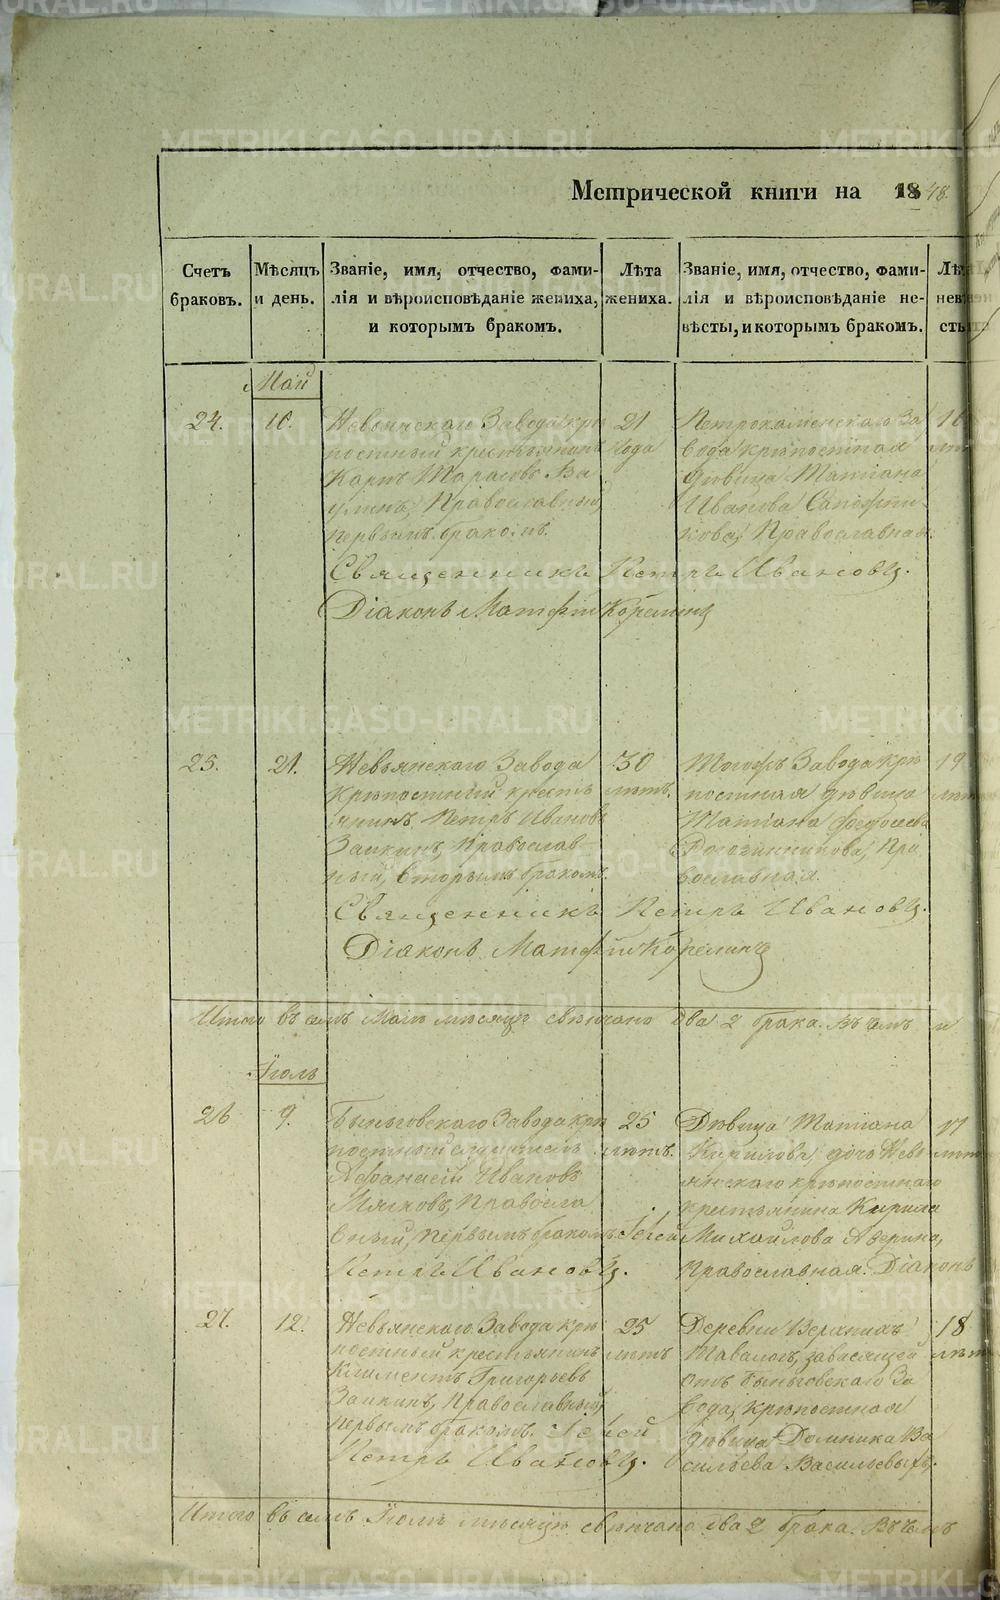 Метрической книги на 1848.
Счетъ браковъ.
Мѣсяцъ и день.
Званіе, имя, отчество, фами-
лія и вѣроисповѣданіе жениха,
и которымъ бракомъ.
Лѣта жениха.
Званіе, имя, отчество, фами-
лія и вѣроисповѣданіе не-
вѣсты, и которымъ бракомъ.
Май
24.
10.
Невьянскаго Завода крѣ
постный крестьянинъ
Карпъ Тарасовъ Ва
улинъ, Православный,
первымъ бракомъ.
21
года
Петрокаменскаго За
вода крѣпостная
дѣвица Татіана
Иванова
кова, Православная.
16
Священникъ Петръ Ивановъ.
Діаконъ Матфій Корелинъ
25.
21.
Невьянскаго Завода
Крѣпостный кресть
янинъ Петръ Ивановъ
Заикинъ, Православ
ный, вторымъ бракомъ.
30
лѣтъ.
Тогожъ Завода крѣ
постная дѣвица
Татіана Федосеева
Рогозинникова, Пра
вославная.
19
Священникъ Петръ Ивановъ.
Діаконъ Матфій Корелинъ
Итого въ семъ Маіѣ мѣсяцѣ свѣнчано два 2 брака. Въ чемъ и
Іюль
26
9.
Быньговскаго Завода крѣ
постный служитель
Афанасій Ивановъ
Мягковъ, Правосла
вный, первымъ бракомъ. Іерей
Петръ Ивановъ.
25
лѣтъ.
Дѣвица Татіана
Кирилова, дочь Невь
янскаго крѣпостнаго
крестьянина Кирила
Михайлова Аверина,
Православная. Діаконъ
17
27.
12.
Невьянскаго Завода крѣ
постный крестьянинъ
Климентъ Григорьевъ
Заикинъ, Православный,
первымъ бракомъ. Іерей
Петръ Ивановъ.
25
лѣтъ
Деревни Верхнихъ
Тавологъ, зависящей
отъ Быньговскаго За
вода, крѣпостная
дѣвица Домника Ва
сильева Васильевыхъ.
18
Итого въ семъ Іюлѣ мѣсяцѣ свѣнчано два 2 брака. Въ чемъ
METRIKI.GASO-URAL.RU